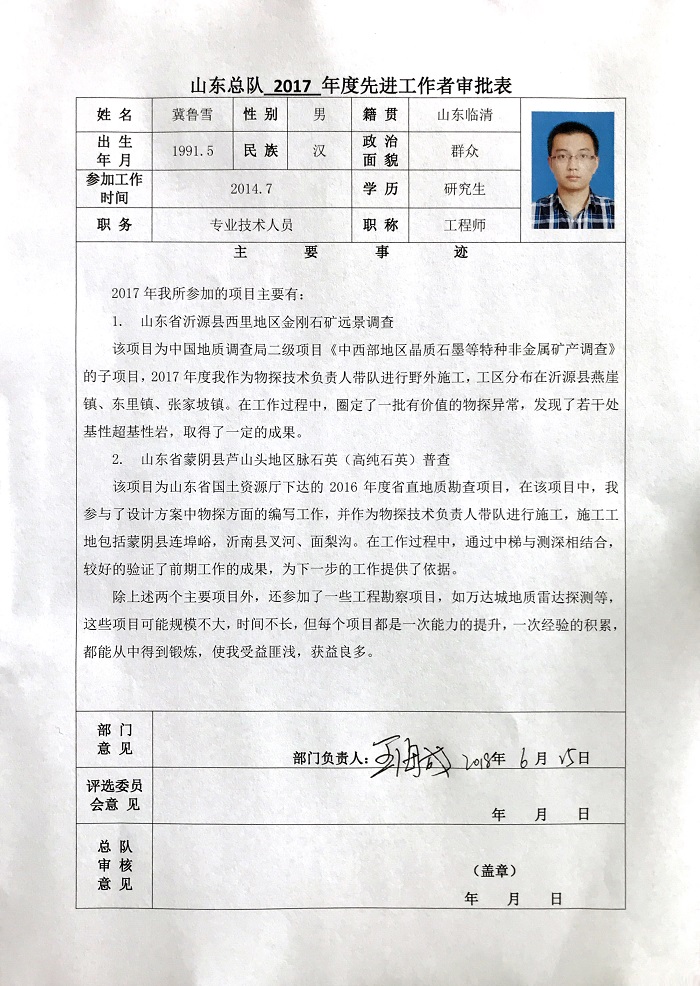 山东总队 2017 年度先进工作者审批表
姓 名 冀鲁雪 性 别 男 籍 贯 山东临清
出 生 年 月 1991.5 民 族 汉 政 治 面 貌 群众
参加工作时间 2014.7 学 历 研究生
职 务 专业技术人员 职 称 工程师
主 要 事 迹
2017 年我所参加的项目主要有：
1. 山东省沂源县西里地区金刚石矿远景调查
该项目为中国地质调查局二级项目《中西部地区晶质石墨等特种非金属矿产调查》
的子项目，2017 年度我作为物探技术负责人带队进行野外施工，工区分布在沂源县燕崖
镇、东里镇、张家坡镇。在工作过程中，圈定了一批有价值的物探异常，发现了若干处
基性超基性岩，取得了一定的成果。
2. 山东省蒙阴县芦山头地区脉石英（高纯石英）普查
该项目为山东省国土资源厅下达的 2016 年度省直地质勘查项目，在该项目中，我
参与了设计方案中物探方面的编写工作，并作为物探技术负责人带队进行施工，施工工
地包括蒙阴县连埠峪，沂南县叉河、面梨沟。在工作过程中，通过中梯与测深相结合，
较好的验证了前期工作的成果，为下一步的工作提供了依据。
除上述两个主要项目外，还参加了一些工程勘察项目，如万达城地质雷达探测等，
这些项目可能规模不大，时间不长，但每个项目都是一次能力的提升，一次经验的积累，
都能从中得到锻炼，使我受益匪浅，获益良多。
部 门
意 见
部门负责人： 2018年 6 月 15日
评选委员
会意 见
年 月 日
总 队
审 核
意 见
（盖章）
年 月 日